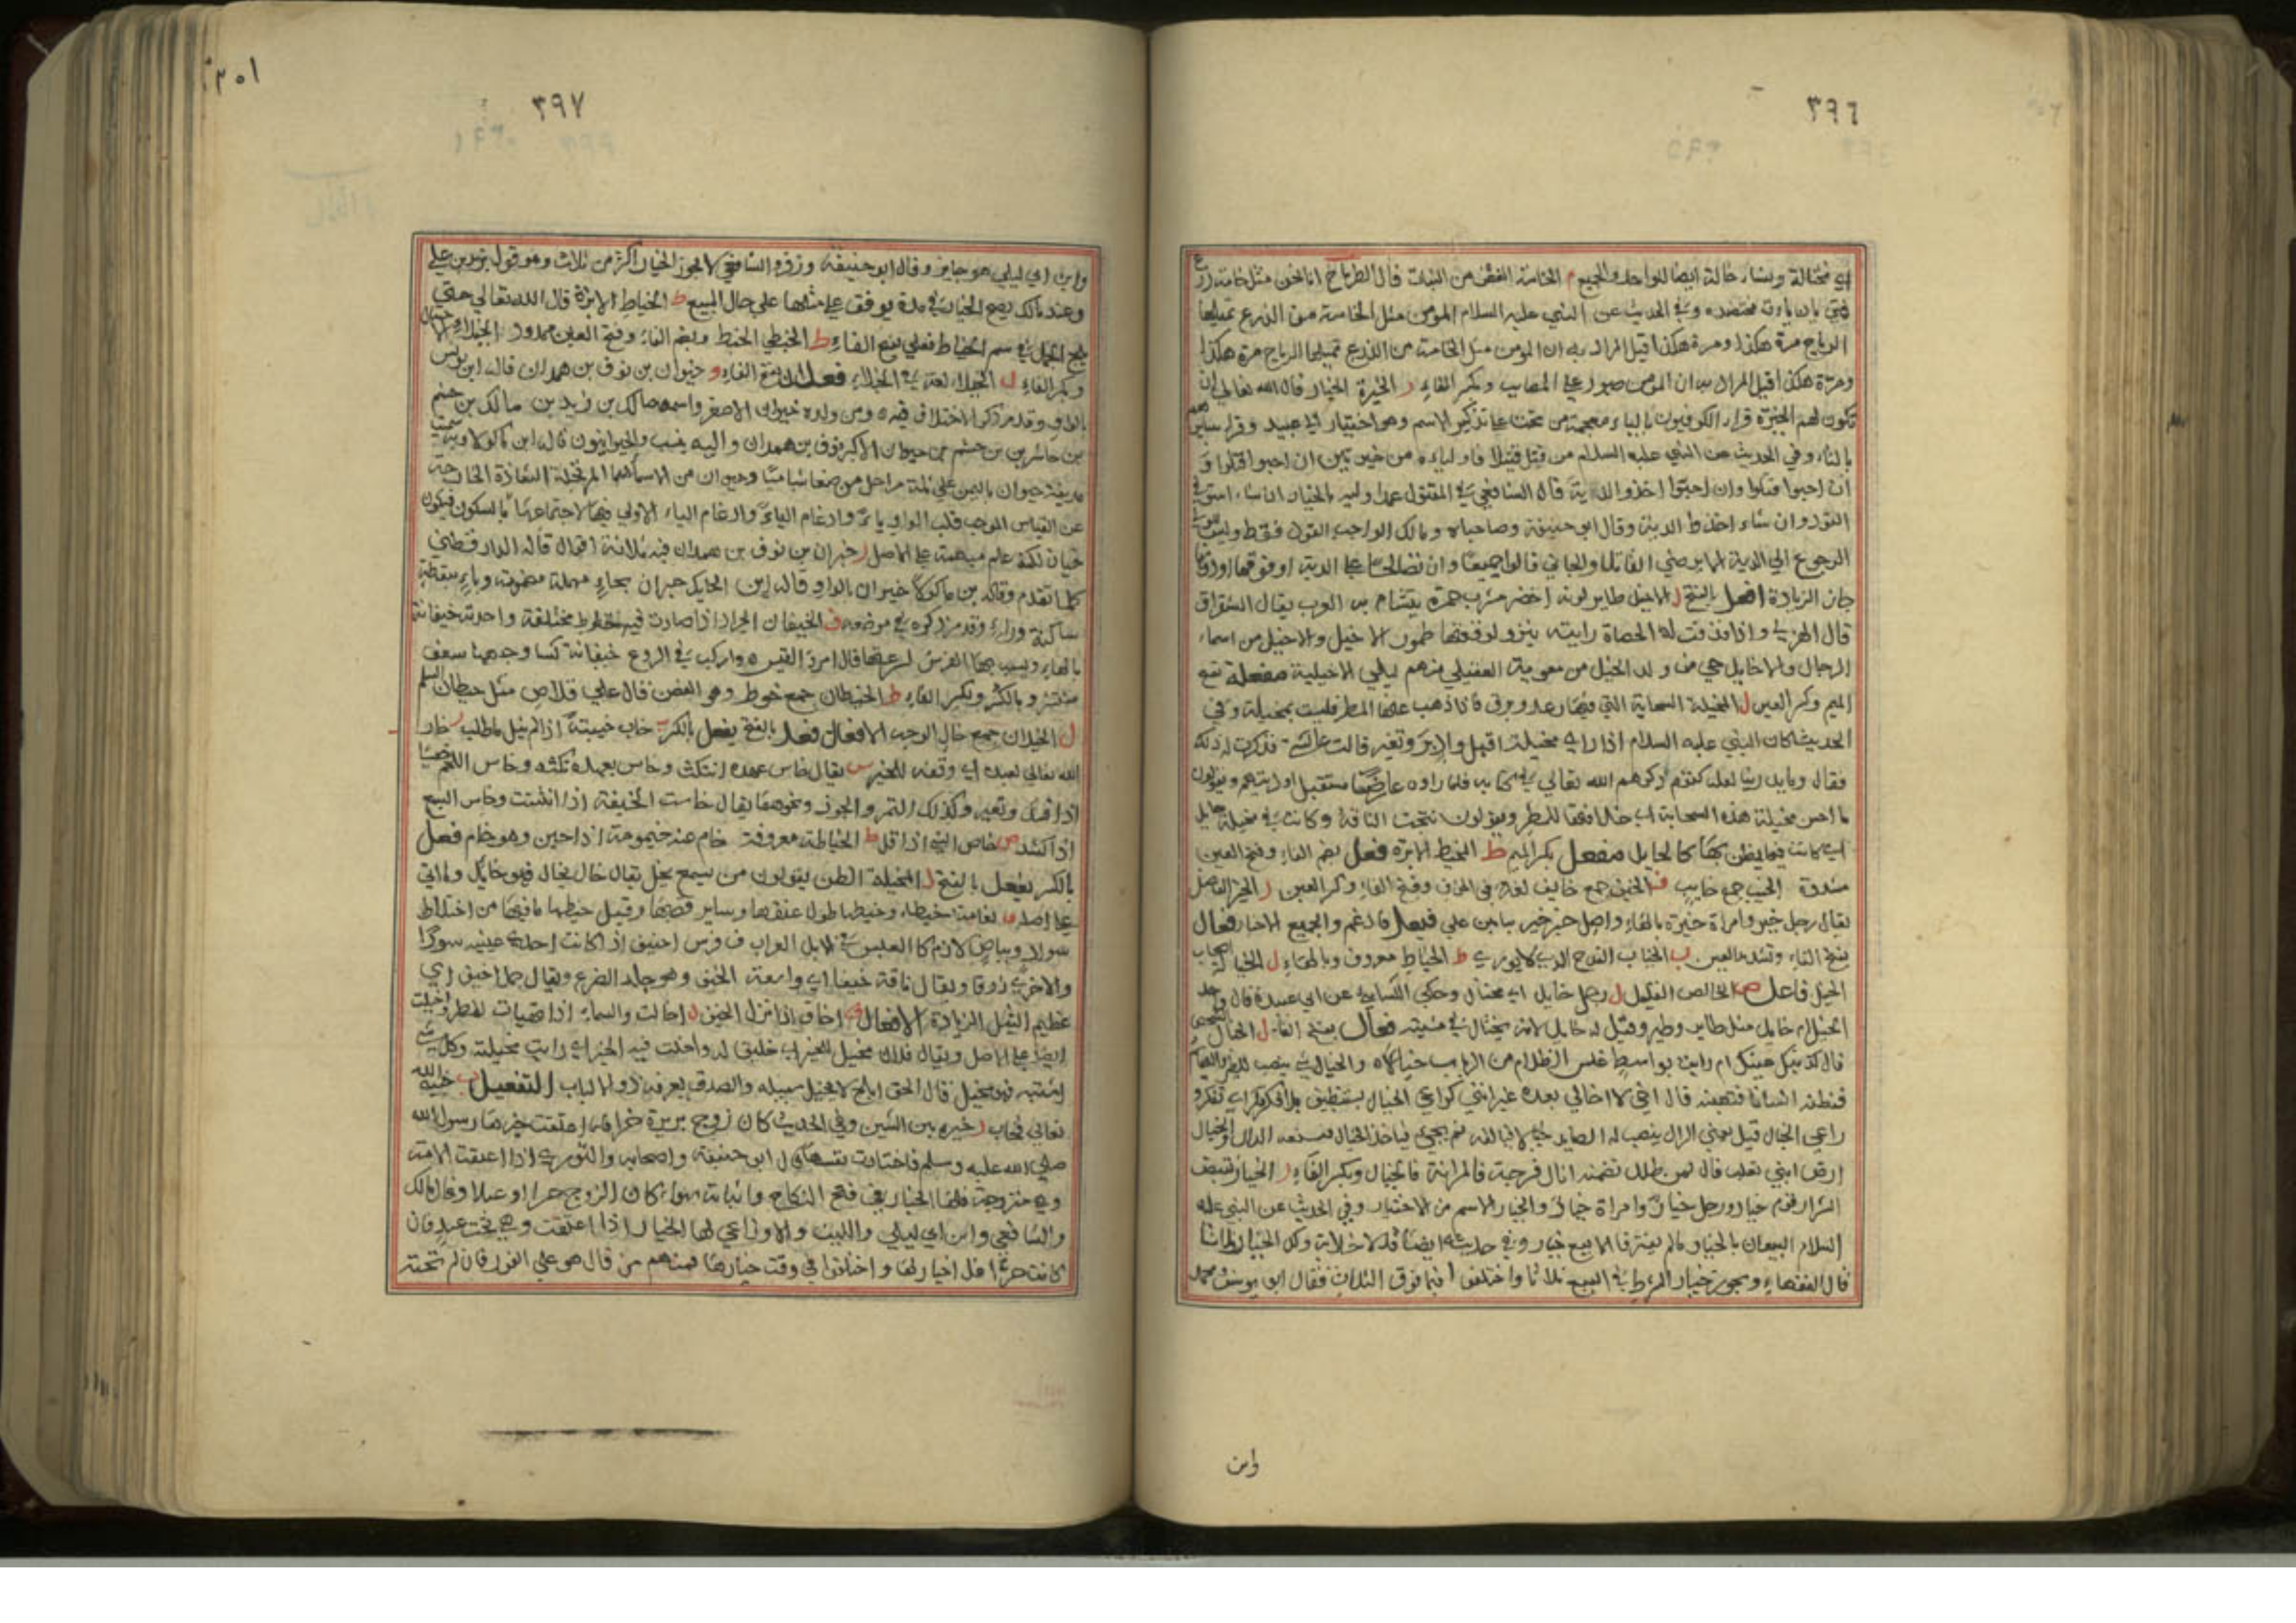 ٣٩٦
اي مختالة ونساء خالة ايضا للواحد والجميع م الخامة الغض من النبات قال الطرماح انما نحن مثل خامة زرع
فمتى يان يات محتصده وفي الحديث عن النبي عليه السلام المؤمن مثل الخامة من الزرع تميلها
الرياح مرة هكذا ومرة هكذا قيل المراد به ان المومن مثل الخامة من الزرع تميلها الرياح مرة هكذا
ومرة هكذا قيل المراد به ان المومن صبور على المصايب وبكسر الفاء ر الخيرة الخيار قال الله تعالى ان
تكون لهم الخيرة قراء الكوفيون بالياء معجمة من تحت على تذكير الاسم وهو اختيار ابي عبيد وقرا سايرهم
بالتاء وفي الحديث عن النبي عليه السلام من قتل قتيلا فاولياءه من خيرتين ان احبوا اقتلوا و
ان احبوا اخذوا الدية قال الشافعي في المقتول عمدا وليه بالخيار ان شاء استوفى
القود وان شاء اخذ الدية وقال ابو حنيفة وصاحباه ومالك الواجب القود فقط وليس له
الرجوع الي الدية الا برضي القاتل والجاني قالوا جميعا وان تصالحا على الدية او فوقها او دونها
جاز الزيادة افعل بالفتح ل الاخيل طاير لونه اخضر مشرب حمرة يتشام به العرب يقال الشقراق
قال الهذلي واذا قذفت له الحصاة رايته ينزو لوقعها طمور الاخيل والاخيل من اسماء
الرجال والاخايل حي من ولد الاخيل من معوية العقيلي منهم ليلي الاخيلية مفعلة بفتح
الميم وكسر العين ل المخيلة السحابة التي فيها رعد وبرق فاذا ذهب عنها المطر فليست بمخيلة وفي
الحديث كان النبي عليه السلام اذا راي مخيلة اقبل وادبر وتغير قالت عائشة فذكرت له ذلك
فقال وما يدرينا لعله كقوم ذكرهم الله تعالى في كتابه فلما راوه عارضا مستقبل اوديتهم ويقولون
ما احسن مخيلة هذه السحابة اي خلاقتها للمطر ويقولون نتجت الناقة وكانت في مخيلة حايل
اي كانت فيما يظن بها كالحايل مفعل بكسر الميم ط المخيط الابرة فعل بضم الفاء وفتح العين
مشددة الخيب جمع خايب ف الخيف جمع خايف لغة في الخوف وفتح الفاء وكسر العين ر الخير الفاضل
يقال رجل خير وامراة خيرة بالهاء واصل خير خيير بياءين على فيعل فادغم والجميع الاخيار فعال
بفتح الفاء وتشديد العين ب الخياب القدح الذي لا يوري ط الخياط معروف وبالهاء ل الخيالة اصحاب
الخيل فاعل ص الخالص القليل ل رجل خايل اي مختال وحكي الكسائي عن ابي عبيدة قال واحد
الخيل خايل مثل طاير وطير وقيل له خايل لانه يختال في مشيته فعال بفتح الفاء ل الخيال الشخص
قال كذبتك عينك ام رايت بواسط غلس الظلام من الرباب خيالا ه والخيال شي ينصب للطير والبهايم
فتظنه انسانا فتهبه قال اخي لا اخالي بعده غير انني كراعي الخيال يستطيف بلا فكر اي تفكر و
راعي الخيال قيل يعني الرال ينصب له الصايد خيالا فيالفه ثم يجيئ فياخذ الخيال فيتبعه الرال والخيال
ارض لبني تغلب قال لمن طلل تضمنه اثال فسرحة فالمرانة فالخيال وبكسر الفاء ر الخيار نقيض
الشرار قوم خيار ورجل خيار وامراة خيار والخيار الاسم من الاختيار وفي الحديث عن النبي عليه
السلام البيعان بالخيار مالم يفترقا الا بيع خيار وفي حديثه ايضا قل لا خلابة ولك الخيار ثلاثا
قال الفقهاء ويجوز خيار الشرط في البيع ثلاثا واختلفوا فيما فوق الثلاث فقال ابو يوسف ومحمد
وابن
٣٩٧
٢٠١
وابن ابي ليلى هو جايز وقال ابو حنيفة وزفر والشافعي لا يجوز الخيار اكثر من ثلاث وهو قول زيد بن علي
وعند مالك يصح الخيار في مدة يوقف على مثلها على حال المبيع ط الخياط الابرة قال الله تعالى حتى
يلج الجمل في سم الخياط فعلي بفتح الفاء ط الخيطي الخيط وبضم الفاء وفتح العين ممدود ل الخيلاء الاختيال
وبكسر الفاء ل الخيلاء لغة في الخيلاء فعلان بفتح الفاء و خيوان بن نوف بن همدان قال ابن يونس
بالواو وقد مر ذكر الاختلاف فيه ومن ولده خيوان الاصغر واسمه مالك بن زيد بن مالك بن جشم
بن حاشد بن جشم بن خيوان الاكبر بن نوف بن همدان واليه ينسب الخيوانيون قال ابن ماكولا وبه سميت
مدينة خيوان باليمن على ثلثة مراحل من صنعا شاميا وخيوان من الاسماء المرتجلة الشاذة الخارجة
عن القياس الموجب قلب الواو ياء وادغام الياء الاولي فيها لاجتماعهما بالسكون فيكون
خيان لكنه علم فبقيت على الاصل ر خيران بن نوف بن همدان فيه ثلاثة اقوال قاله الدارقطني
كما تقدم وقال بن ماكولا خيوان بالواو وقال ابن الحايك حبران بحاء مهملة مضمومة وباء بنقطة
ساكنة وراء وقد مر ذكره في موضعه ف الخيفان الجراد اذا صارت فيه خطوط مختلفة واحدته خيفانة
بالهاء ويشبه بها الفرس لسرعتها قال امرؤ القيس ه واركب في الروع خيفانة كسا وجهها سعف
منتشر وبالكسر وبكسر الفاء ط الخيطان جمع خوط وهو الغصن قال علي قلاص مثل خيطان السلم
ل الخيلان جمع خال الوجه الافعال فعل بالفتح يفعل بالكسر ب خاب خيبة اذا لم ينل ما طلب ر خار
الله تعالى لعبده اي وفقه للخير س يقال خاس عهده انتكث وخاس بعهده نكثه وخاس اللحم خيسا
اذا فسد وتغير وكذلك التمر والجوز ونحوهما يقال خاست الجيفة اذا انتنت وخاس البيع
اذا كسد ص خاص الشي اذا قل ط الخياطة معروفة خام عنه خيمومة اذا جبن وهو خام فعل
بالكسر يفعل بالفتح ل المخيلة الظن يقولون من يسمع يخل يقال خال يخال فهو خايل وما اتي
على اصله ط نعامة خيطاء وخيطها طول عنقها وساير قصبها وقيل خيطها ما فيها من اختلاط
سواد وبياض لازم كالعيس في الابل العراب ف فرس اخيف اذا كانت احدى عينيه سودا
والاخرى زرقا ويقال ناقة خيفا اي واسعة الخيف وهو جلد الضرع ويقال جمل اخيف اي
عظيم الثيل الزيادة الافعال ف اخاف اذا نزل الخيف ل اخالت والسماء اذا تهيات للمطر واخيلت
ايضا على الاصل ويقال فلان مخيل للخير اي خليق له واخلت فيه الخير اي رايت مخيلته وكل شي
اشتبه فهو مخيل قال الحق ابلج لا يخيل سبيله والصدق يعرفه ذوو الالباب التفعيل ب خيبه الله
تعالى فخاب ر خيره بين الشيئين وفي الحديث كان زوج بريرة حرا فلما اعتقت خيرها رسول الله
صلى الله عليه وسلم فاختارت نفسها قال ابو حنيفة واصحابه والثوري اذا اعتقت الامة
وهي متزوجة فلها الخيار في فسخ النكاح واثباته سواء كان الزوج حرا او عبدا وقال مالك
والشافعي وابن ابي ليلى والليث والاوزاعي لها الخيار اذا اعتقت وهي تحت عبد فان
كانت تحت حر فلا خيار لها واختلفوا في وقت خيارها فمنهم من قال هو على الفور فان لم تختر